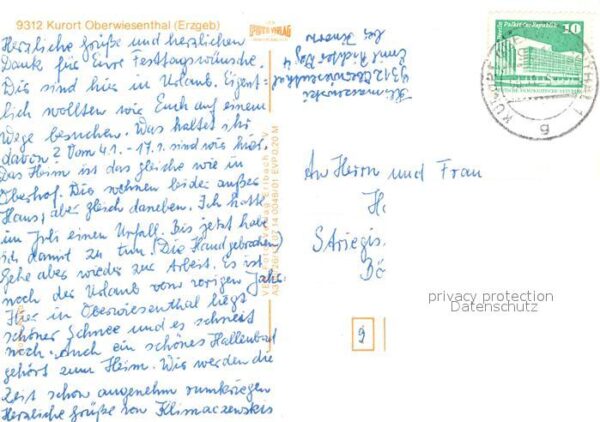 9312 Kurort Oberwiesenthal (Erzgeb)
Herzliche Grüße und herzlichen
Dank für Eure Festtagswünsche.
Wir sind hier im Urlaub. Eigent-
lich wollten wir Euch auf einem
Wege besuchen. Was haltet ihr
davon? Vom 4.1. - 17.1. sind wir hier.
Das Heim ist das gleiche wie in
Oberhof. Wir wohnen leider außer
Haus, aber gleich daneben. Ich hatte
im Juli einen Unfall. Bis jetzt habe
ich damit zu tun. (Die Hand gebrochen)
Gehe aber wieder zur Arbeit. Es ist
noch der Urlaub vom vorigen Jahr.
Hier in Oberwiesenthal liegt
schöner Schnee und es schneit
noch. Auch ein schönes Hallenbad
gehört zum Heim. Wir werden die
Zeit schon angenehm rumkriegen
Herzliche Grüße von Klimaczewskis
Klimaczewski
9312 Oberwiesenthal
VERLAG
EVP 0,20 M
10
An Herrn und Frau
H
Striegis
Bö
privacy protection
Datenschutz
9